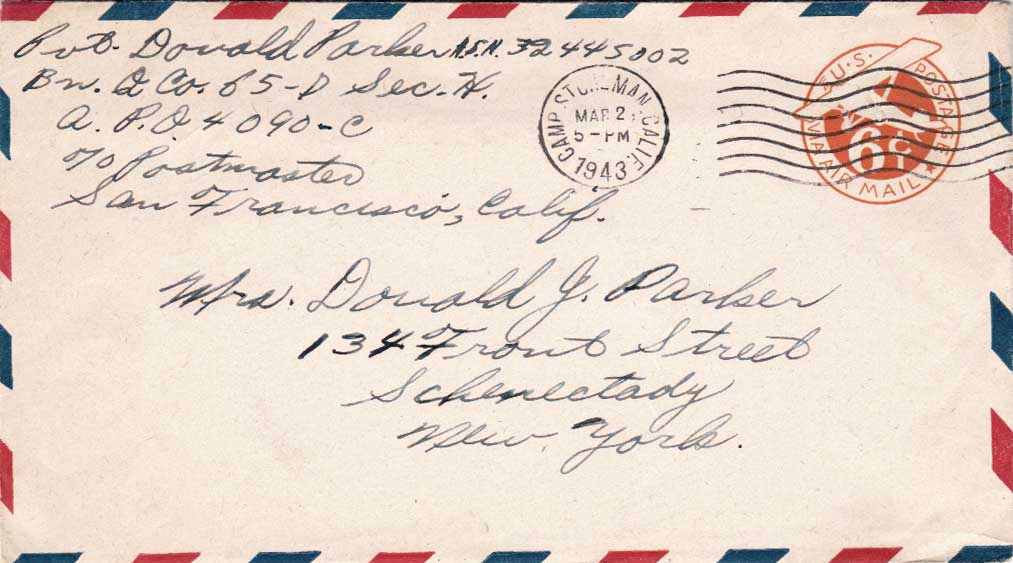 Pvt. Donald Parker A.S.N. 32445002
Bn. & Co. 65-D Sec. H.
A. P.O 4090-C
c/o Postmaster
San Francisco, Calif.
CAMP STONEMAN, CALIF.
MAR 2
5-PM
1943
U.S. POSTAGE
6¢
VIA AIR MAIL
Mrs. Donald J. Parker
134 Front Street
Schenectady
New York.